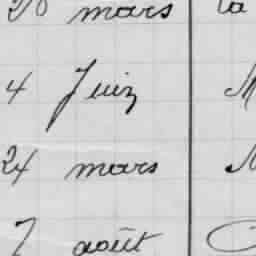 mars la
4 Juin M
24 mars
7 août